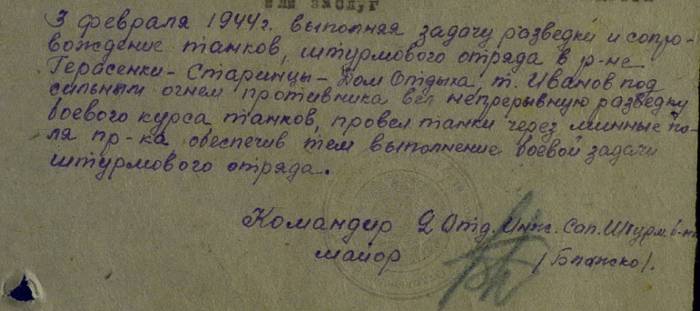 или заслуг
3 февраля 1944г. выполняя задачу разведки и сопро-
вождение танков, штурмового отряда в р-не
Герасенки – Старинцы – Дом Отдыха, т. Иванов под
сильным огнем противника вел непрерывную разведку
боевого курса танков, провел танки через минные по-
ля пр-ка обеспечив тем выполнение боевой задачи
штурмового отряда.
Командир 2 Отд. Инж. Сап. Штурм. б-на
майор